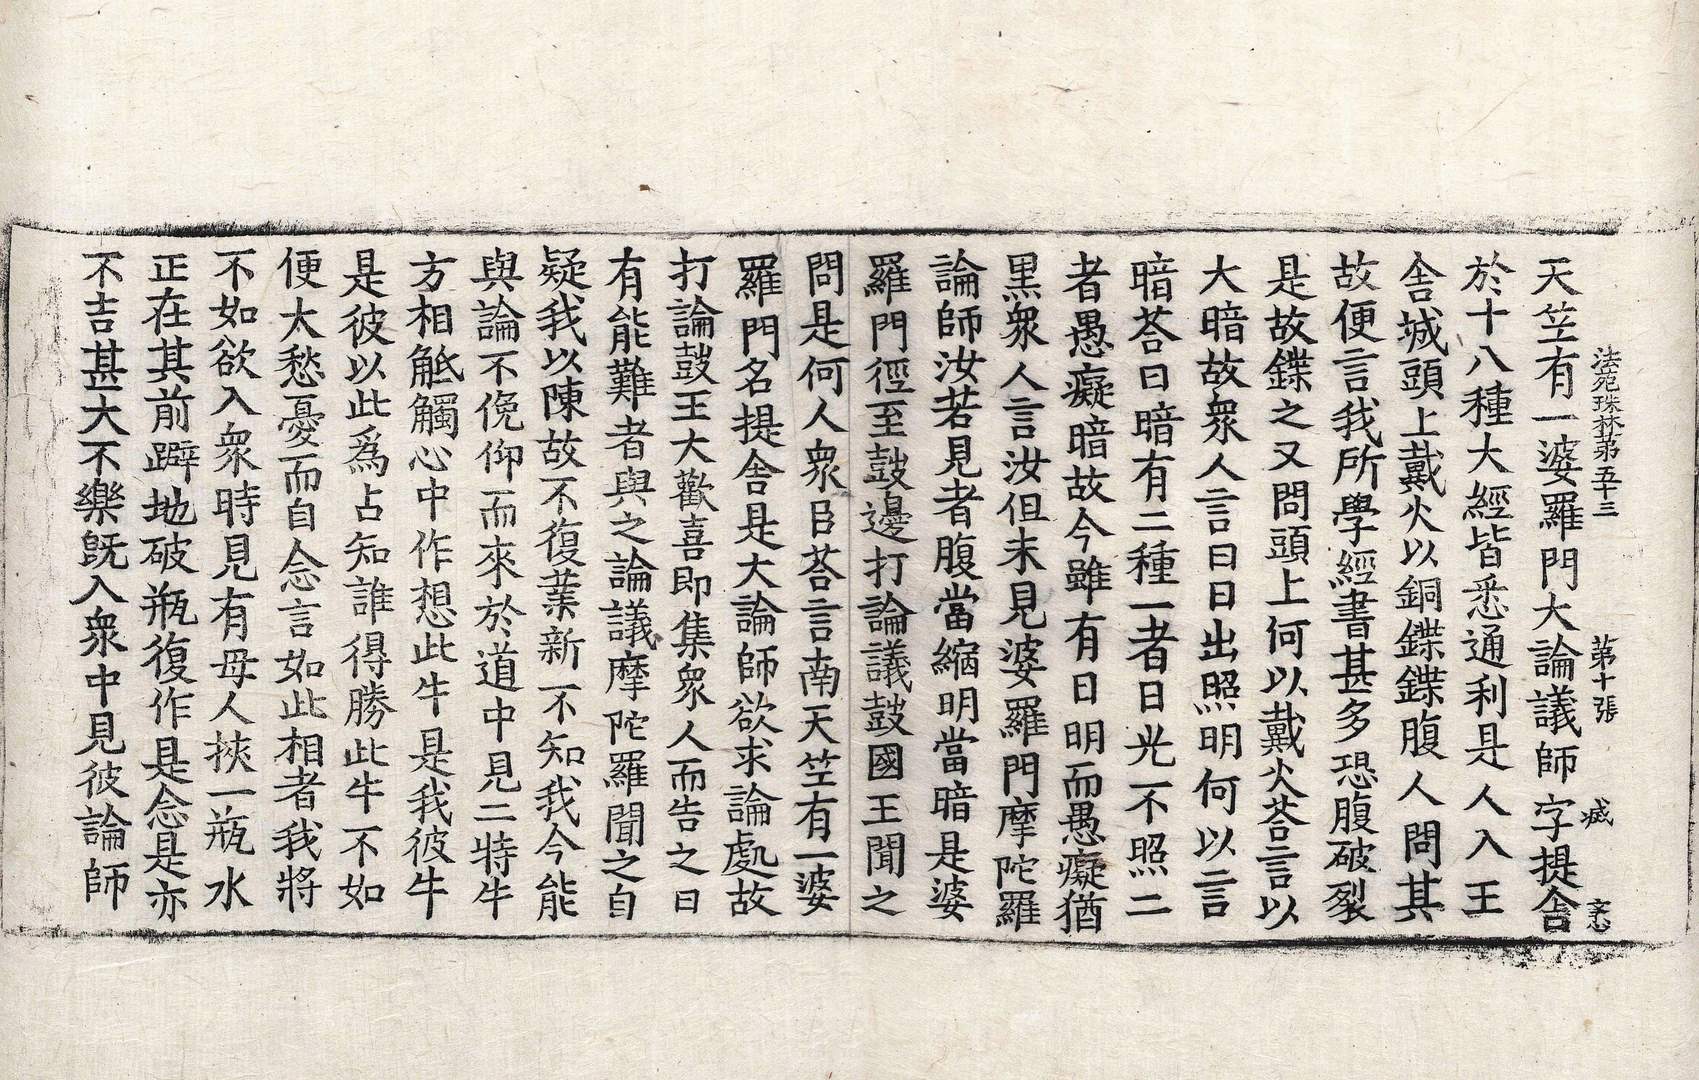 法苑珠林第五十三　第十張　㭜　玄心
天竺有一婆羅門大論議師字提舍
於十八種大經皆悉通利是人入王
舍城頭上戴火以銅鍱鍱腹人問其
故便言我所學經書甚多恐腹破裂
是故鍱之又問頭上何以戴火荅言以
大暗故衆人言曰日出照明何以言
暗荅曰暗有二種一者日光不照二
者愚癡暗故今雖有日明而愚癡猶
黑衆人言汝但未見婆羅門摩陀羅
論師汝若見者腹當縮明當暗是婆
羅門徑至鼓邊打論議鼓國王聞之
問是何人衆臣荅言南天竺有一婆
羅門名提舍是大論師欲求論處故
打論鼓王大歡喜即集衆人而告之曰
有能難者與之論議摩陀羅聞之自
疑我以陳故不復業新不知我今能
與論不俛仰而來於道中見二特牛
方相觝觸心中作想此牛是我彼牛
是彼以此爲占知誰得勝此牛不如
便太愁憂而自念言如此相者我將
不如欲入衆時見有母人挾一瓶水
正在其前躃地破瓶復作是念是亦
不吉甚大不樂旣入衆中見彼論師